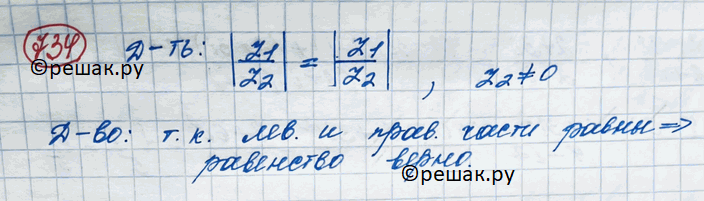 734 Д-ть: |z1/z2| = |z1/z2|, z2≠0
©решак.ру
Д-во: т.к. лев. и прав. части равны =>
равенство верно.
©решак.ру